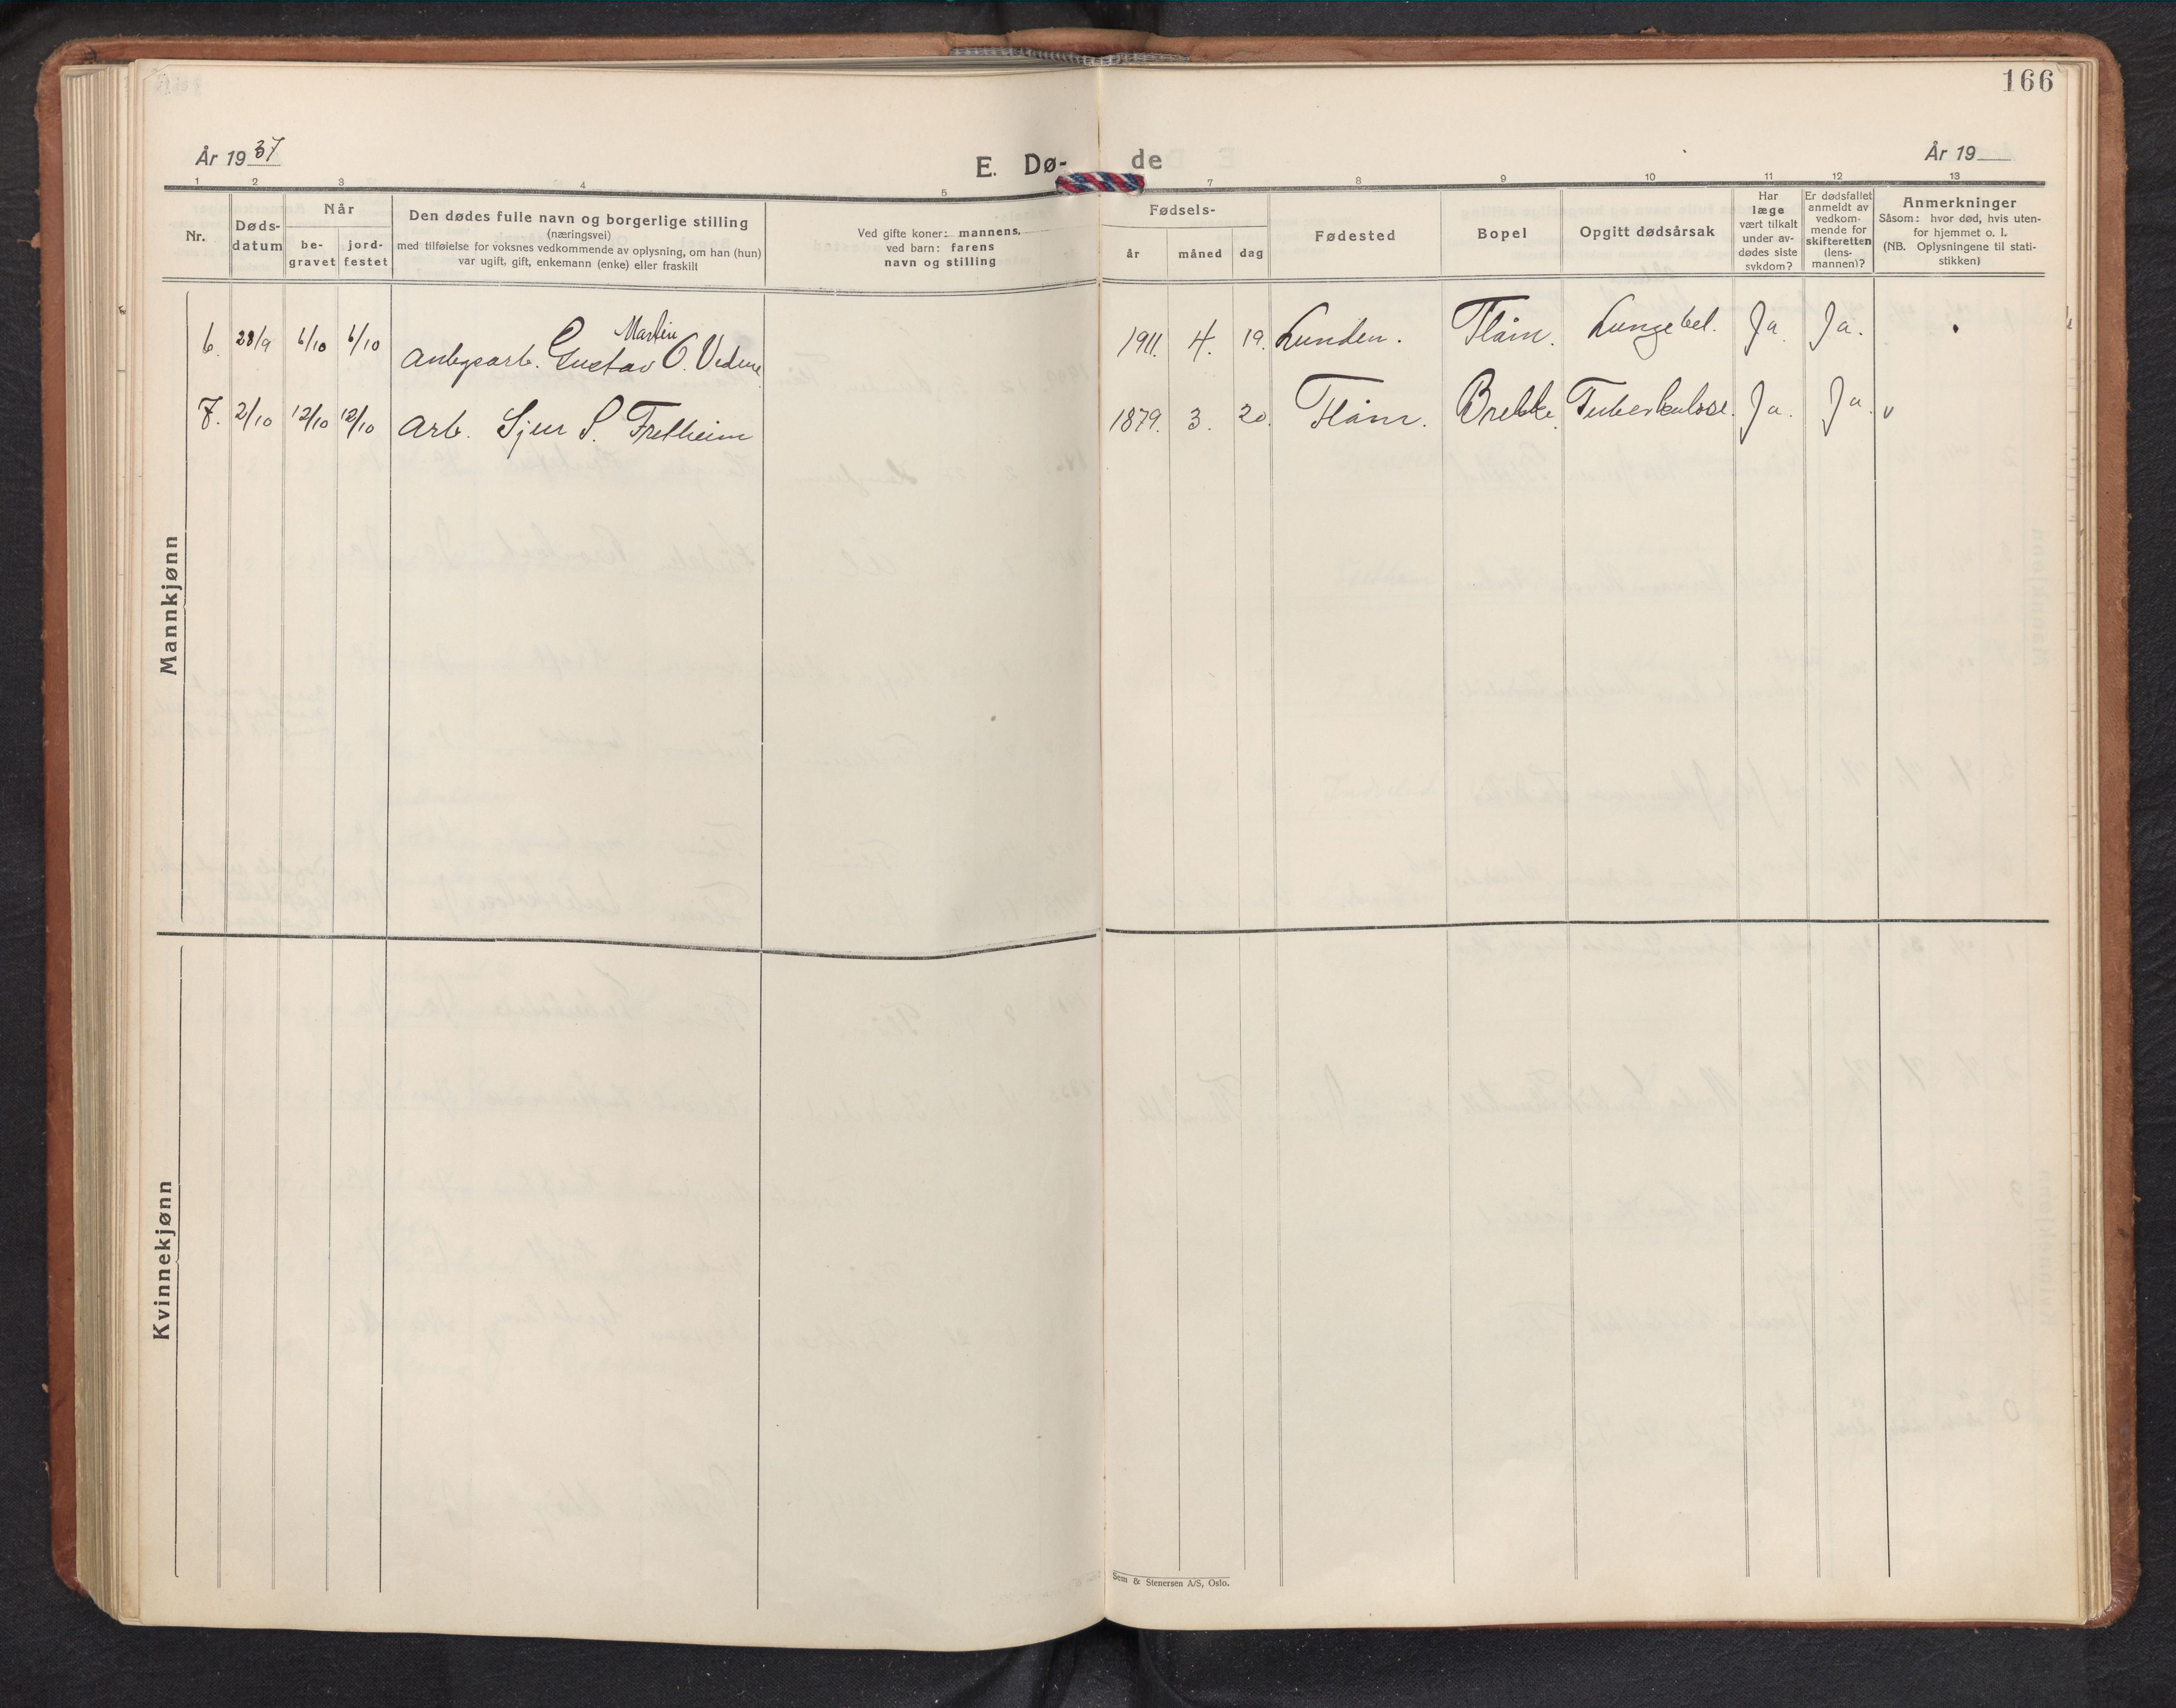 166
År 1937
E. Dø- de
År 19
1 2 3 4 5 7 8 9 10 11 12 13
Nr.
Døds-
datum
Når
be-
gravet
jord-
festet
Den dødes fulle navn og borgerlige stilling
(næringsvei)
med tilføielse for voksnes vedkommende av oplysning, om han (hun)
var ugift, gift, enkemann (enke) eller fraskilt
Ved gifte koner: mannens,
ved barn: farens
navn og stilling
Fødsels-
år måned dag
Fødested
Bopel
Opgitt dødsårsak
Har
læge
vært tilkalt
under av-
dødes siste
sykdom?
Er dødsfallet
anmeldt av
vedkom-
mende for
skifteretten
(lens-
mannen)?
Anmerkninger
Såsom: hvor død, hvis uten-
for hjemmet o. l.
(NB. Oplysningene til stati-
stikken)
Mannkjønn
6. 28/9 6/10 6/10 Anlegsarb. Gustav Martin O. Vidme 1911. 4. 19. Lunden. Flåm. Lungebet. Ja. Ja.
7. 2/10 12/10 12/10 Arb. Sjur S. Fretheim 1879. 3. 20. Flåm. Brekke. Tuberkulose. Ja. Ja. v
Kvinnekjønn
Sem & Stenersen A/S, Oslo.